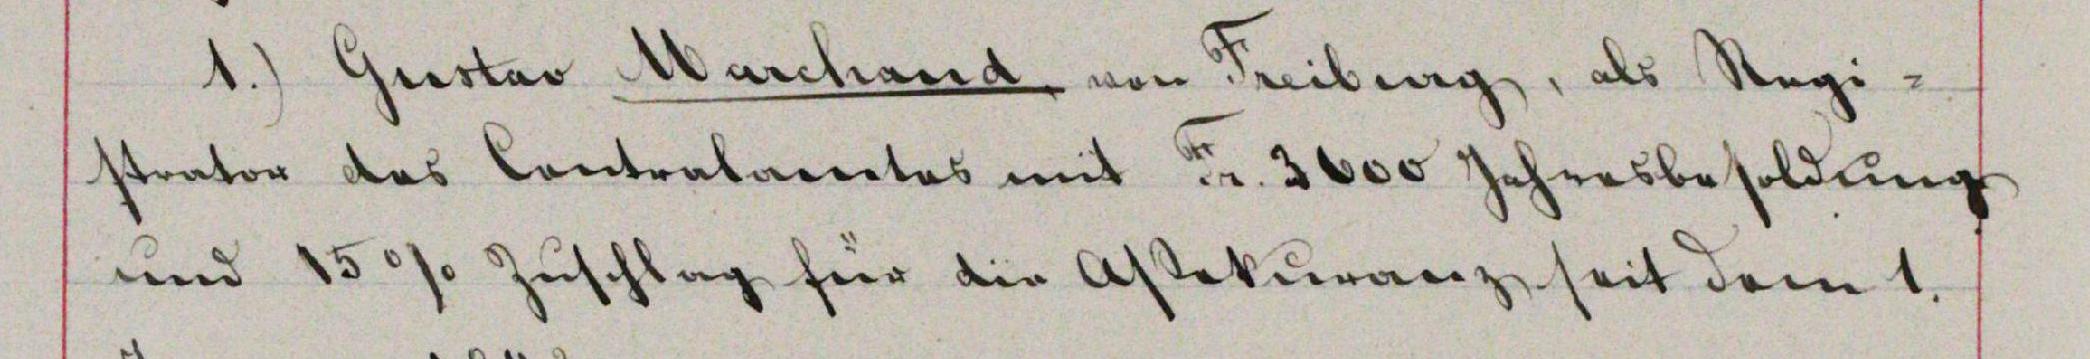 1.) Gustav Marchand, von Freiburg, als Regi=
strator des Centralamtes mit Fr. 3600 Jahresbesoldung
und 15% Zuschlag für die Assekuranz seit dem 1.